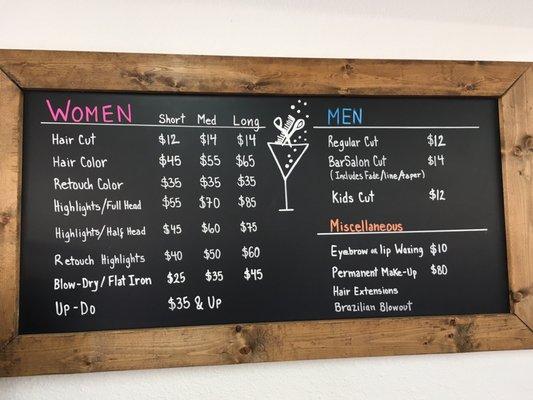 WOMEN Short Med Long
Hair Cut $12 $14 $14
Hair Color $45 $55 $65
Retouch Color $35 $35 $35
Highlights/Full Head $55 $70 $85
Highlights/Half Head $45 $60 $75
Retouch Highlights $40 $50 $60
Blow-Dry/Flat Iron $25 $35 $45
Up-Do $35 & Up
MEN
Regular Cut $12
BarSalon Cut $14
(Includes Fade/line/taper)
Kids Cut $12
Miscellaneous
Eyebrow or lip Waxing $10
Permanent Make-Up $80
Hair Extensions
Brazilian Blowout